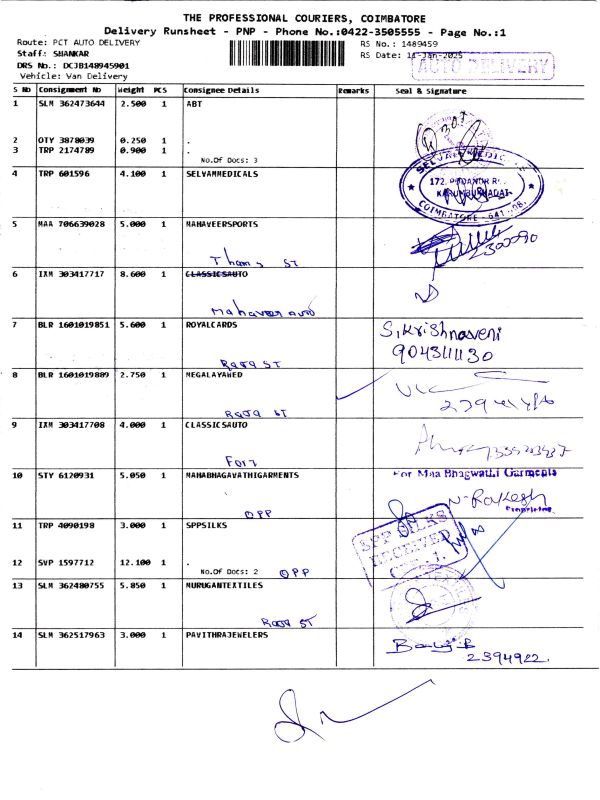 THE PROFESSIONAL COURIERS, COIMBATORE
Delivery Runsheet - PNP - Phone No.:0422-3505555 - Page No.:1
Route: PCT AUTO DELIVERY
RS No.: 1489459
Staff: SHANKAR
RS Date: 11-Jan-2025
DRS No.: DCJB148945901
AUTO DELIVERY
Vehicle: Van Delivery
S No Consignment No Weight PCS Consignee Details Remarks Seal & Signature
1 SLM 362473644 2.500 1 ABT
2 OTY 3878039 0.250 1 .
3 TRP 2174789 0.900 1 .
No.Of Docs: 3
4 TRP 601596 4.100 1 SELVAMMEDICALS
172,
COIMBATORE - 641
5 MAA 706639028 5.000 1 MAHAVEERSPORTS
Thomas ST
6 IXM 303417717 8.600 1 CLASSICSAUTO
Mahaveer auto
7 BLR 1601019851 5.600 1 ROYALCARDS
S.Krishnaveni
Raja ST
8 BLR 1601019809 2.750 1 MEGALAYAWED
Raja ST
9 IXM 303417708 4.000 1 CLASSICSAUTO
Fort
10 STY 6120931 5.050 1 MAHABHAGAVATHIGARMENTS
For Maa Bhagwathi Garments
N. Rakesh
Proprietor
OPP
11 TRP 4090198 3.000 1 SPPSILKS
SPP SILKS
RECEIVED
12 SVP 1597712 12.100 1 .
No.Of Docs: 2 OPP
13 SLM 362480755 5.850 1 MURUGANTEXTILES
Raja ST
14 SLM 362517963 3.000 1 PAVITHRAJEWELERS
2394922